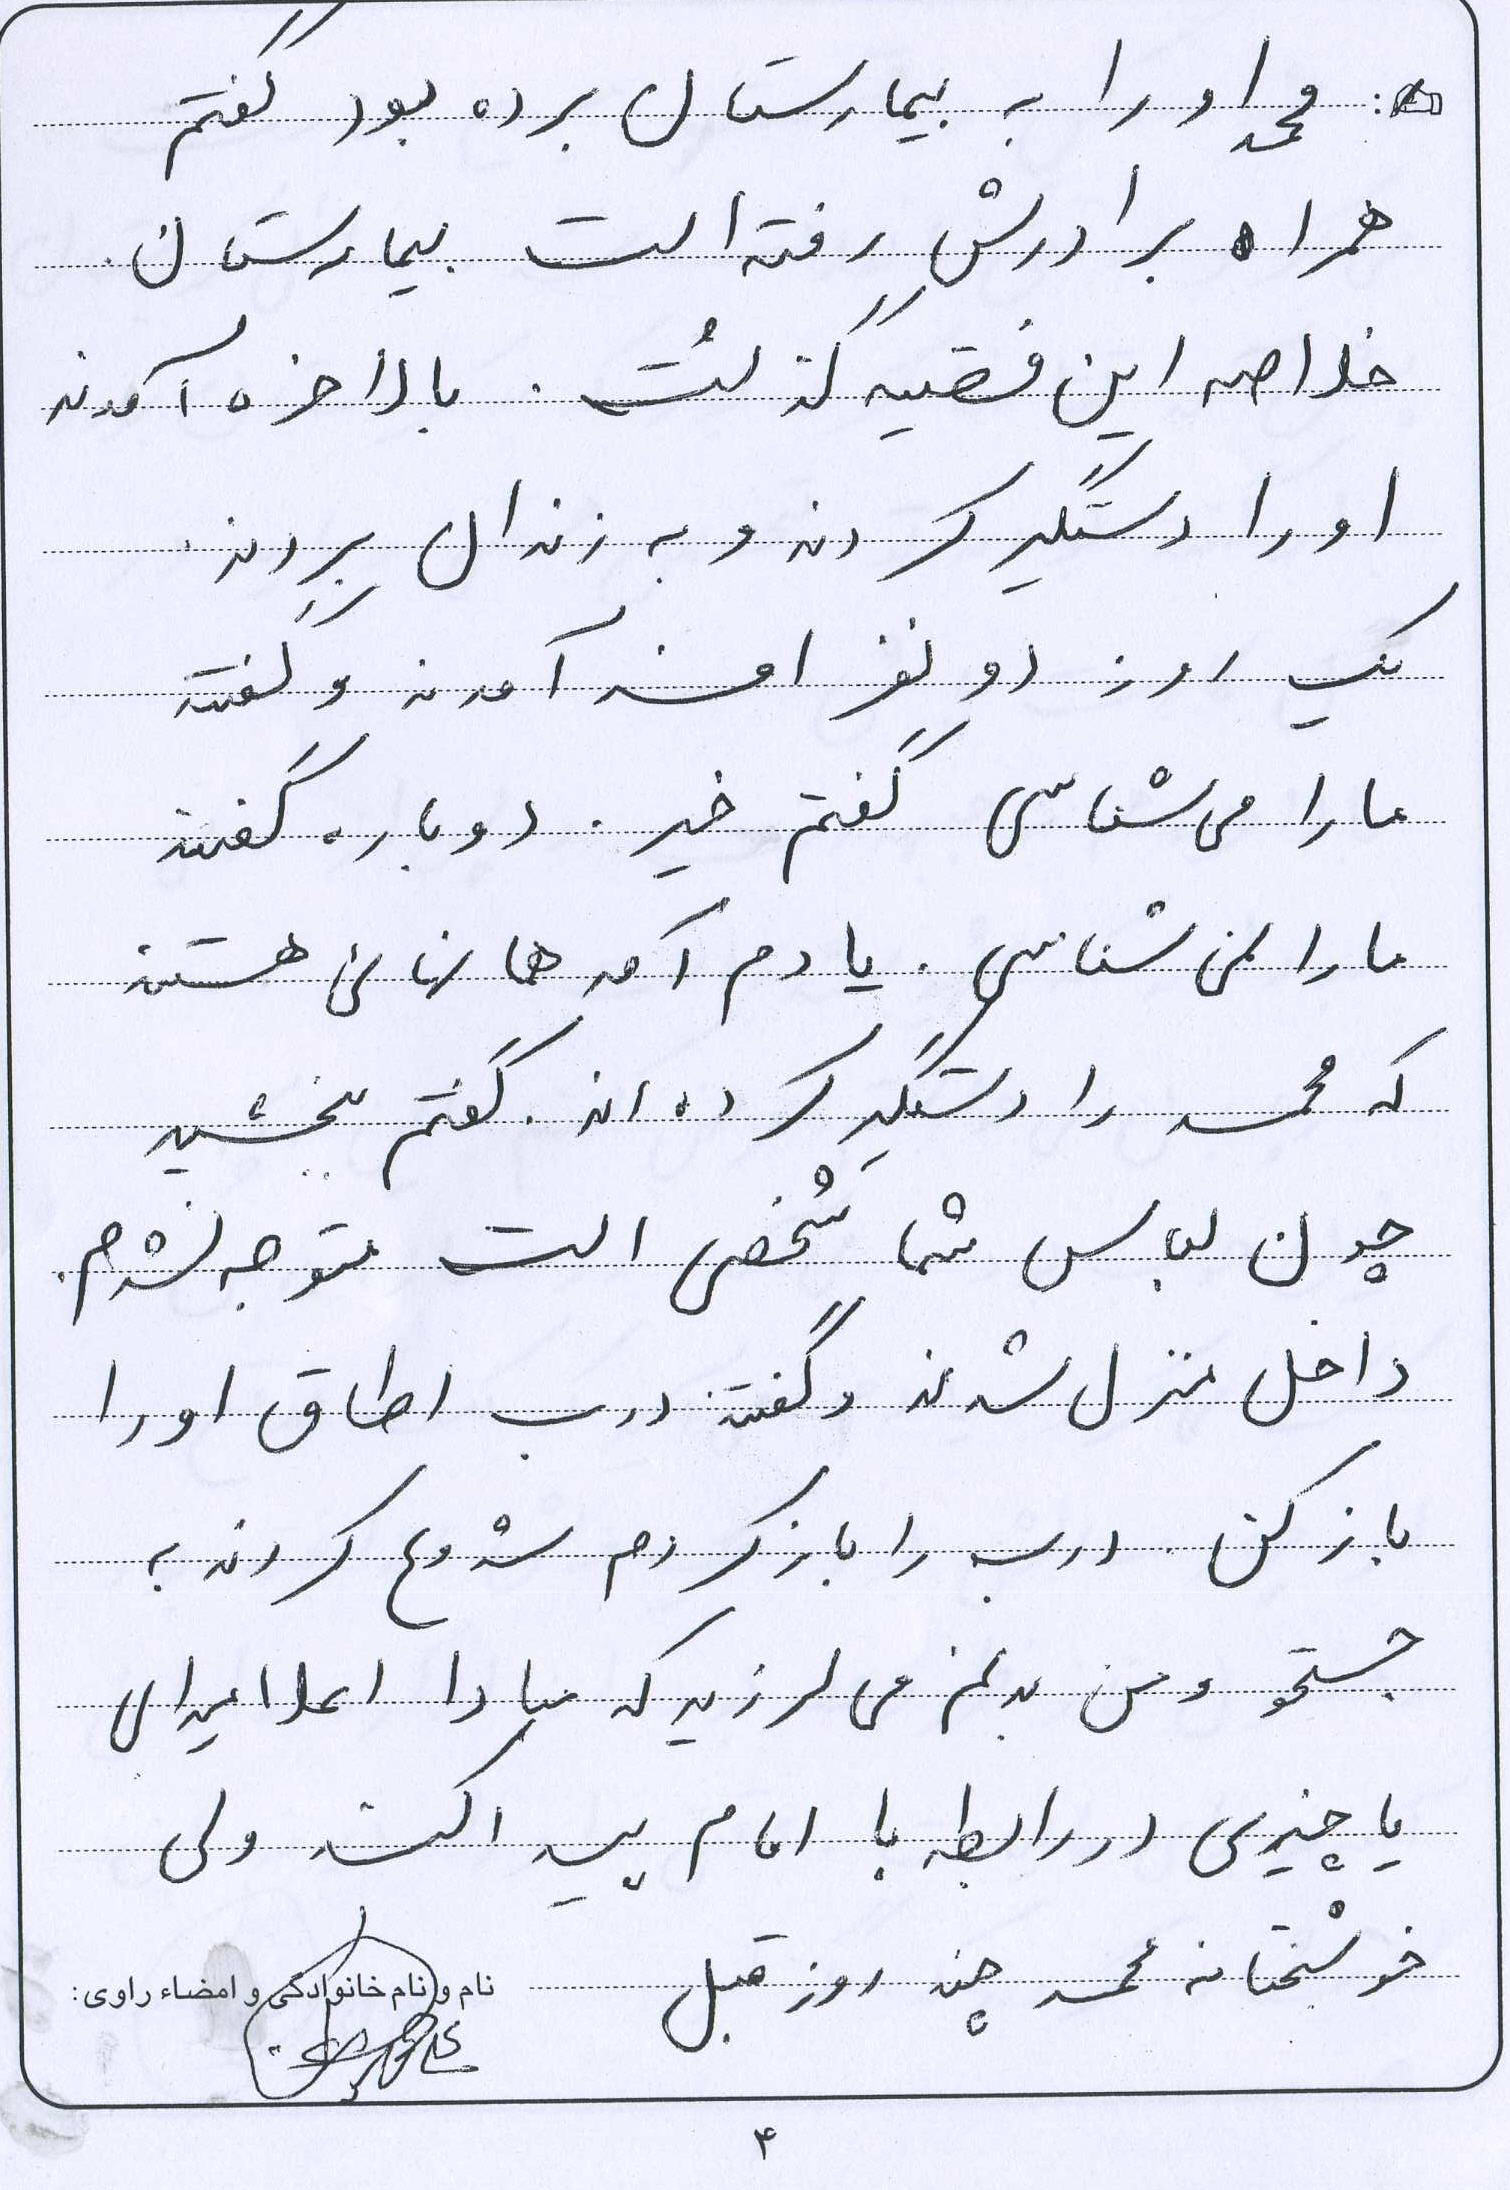 محمد او را به بیمارستان برده بود گفتم
همراه برادرش رفته است بیمارستان.
خلاصه این قضیه گذشت. بالاخره آمدند
او را دستگیر کردند و به زندان بردند.
یک روز دو نفر آمدند و گفتند
ما را می شناسی گفتم خیر. دوباره گفتند
ما را نمی شناسی. یادم آمد همانهائی هستند
که محمد را دستگیر کرده اند. گفتم ببخشید
چون لباس شما شخصی است متوجه نشدم.
داخل منزل شدند و گفتند درب اطاق او را
باز کن. درب را باز کردم شروع کردند به
جستجو و من بدنم می لرزید که مبادا اعلامیه ای
یا چیزی در رابطه با امام پیدا کنند ولی
خوشبختانه محمد چند روز قبل
نام و نام خانوادگی و امضاء راوی:
۴